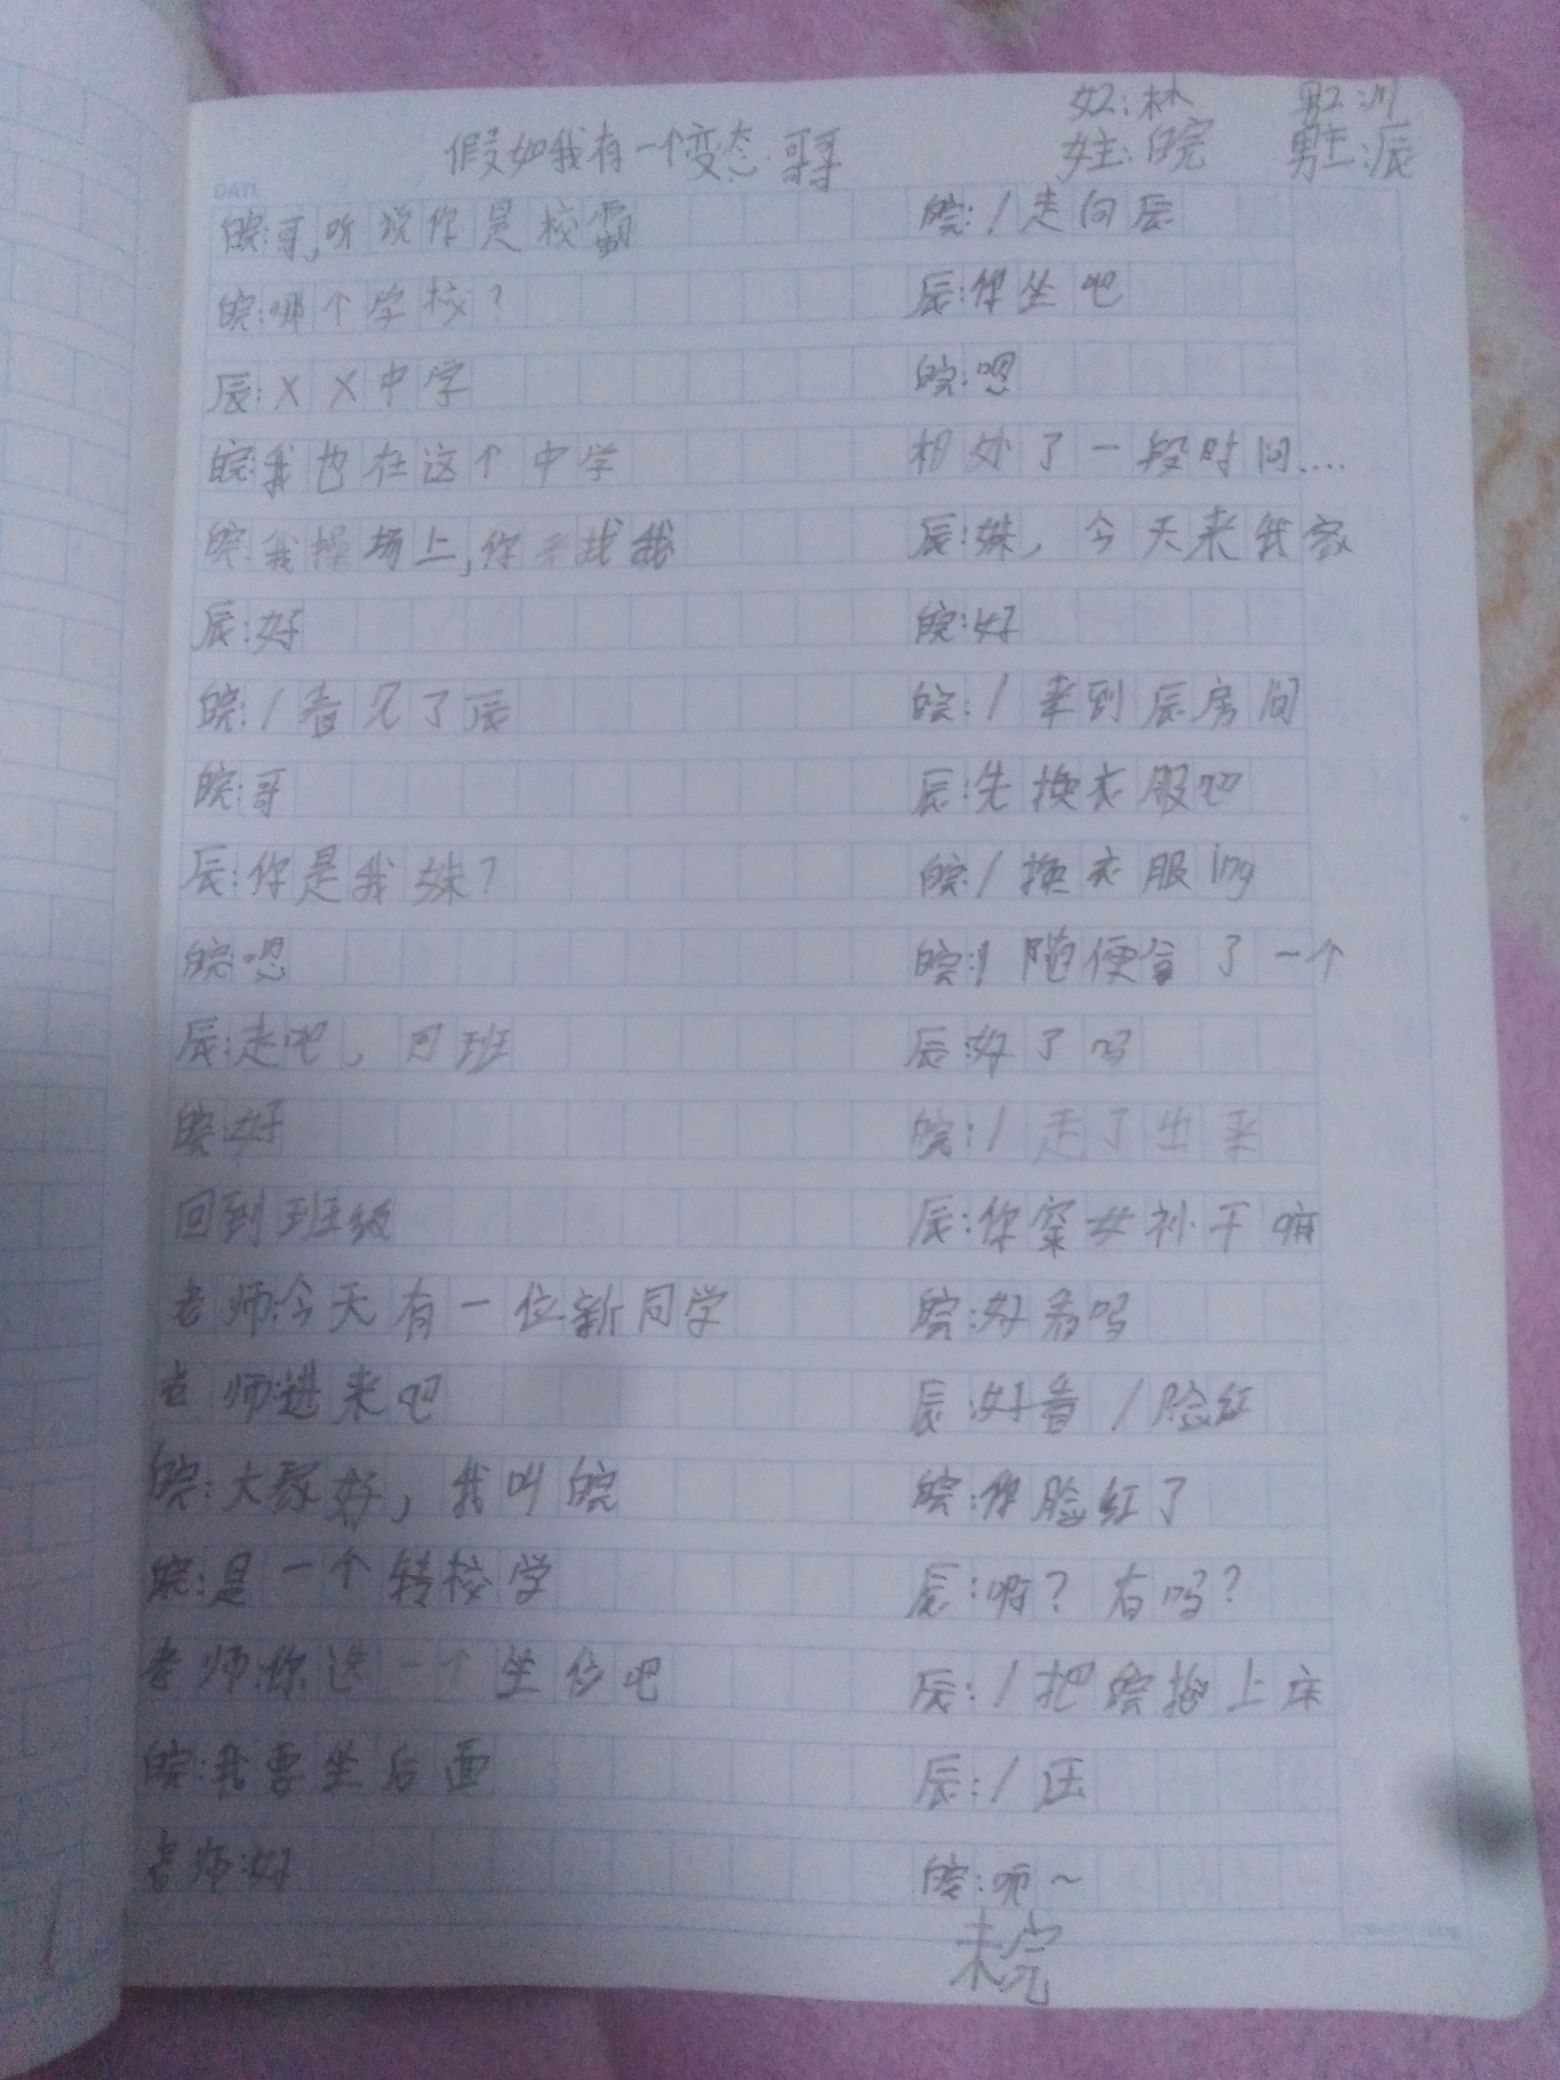 女2:林 男2:川
假如我有一个变态哥哥 女主:皖 男主:辰
DATE
皖:哥,听说你是校霸
皖:哪个学校?
辰:X X中学
皖:我也在这个中学
皖:我操场上,你来找我
辰:好
皖:/看见了辰
皖:哥
辰:你是我妹?
皖:嗯
辰:走吧,回班
皖:好
回到班级
老师:今天有一位新同学
老师:进来吧
皖:大家好,我叫皖
皖:是一个转校学
老师:你选一个坐位吧
皖:我要坐后面
老师:好
皖:/走向辰
辰:你坐吧
皖:嗯
相处了一段时间....
辰:妹,今天来我家
皖:好
皖:/来到辰房间
辰:先换衣服吧
皖:/换衣服ing
皖:/随便拿了一个
辰:好了吗
皖:/走了出来
辰:你穿女补干嘛
皖:好看吗
辰:好看/脸红
皖:你脸红了
辰:啊?有吗?
辰:/把皖抱上床
辰:/压
皖:呃~
未完